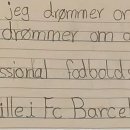 jeg drømmer or
drømmer om a
ssional fodbold
ille i Fc Barcel